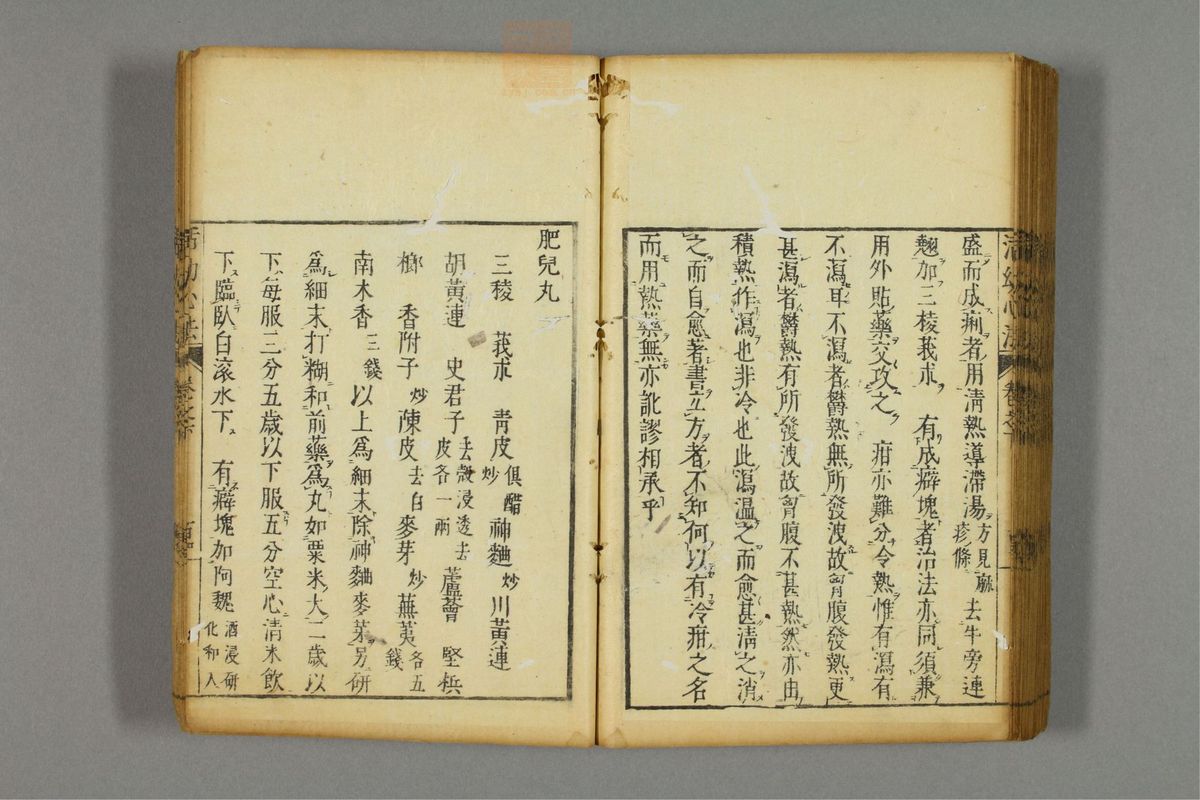 活幼心法
盛而成痢者用清熱導滯湯方見麻疹條去牛旁連
翹加三棱莪朮　有成癖塊者治法亦同須兼
用外貼藥交攻之　疳亦難分冷熱惟有瀉有
不瀉耳不瀉者鬱熱無所發洩故胷腹發熱更
甚瀉者鬱熱有所發洩故胷腹不甚熱然亦由
積熱作瀉也非冷也此瀉溫之而愈甚清之消
之而自愈著書立方者不知何以有冷疳之名
而用熱藥無亦訛謬相承乎
肥兒丸
三稜　莪朮　靑皮俱醋炒神麯炒川黃連
胡黃連　史君子去殼浸透去皮各一兩蘆薈　堅梹
榔　香附子炒陳皮去白麥芽炒蕪荑各五錢
南木香三錢以上爲細末除神麯麥芽另研
爲細末打糊和前藥爲丸如粟米大二歲以
下每服三分五歲以下服五分空心清米飲
下臨臥白滾水下　有癖塊加阿魏酒浸研化和入
活幼心法